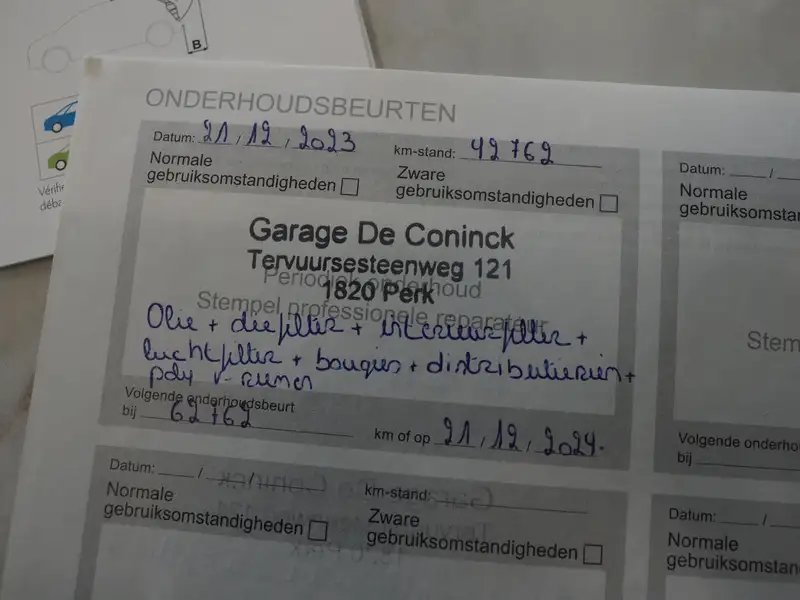 B
Vérifi
déba
ONDERHOUDSBEURTEN
Datum: 21 / 12 / 2023 km-stand: 42762
Normale gebruiksomstandigheden
Zware gebruiksomstandigheden
Garage De Coninck
Tervuursesteenweg 121
1820 Perk
Periodiek onderhoud
Stempel professionele reparateur
Olie + oliefilter + interieurfilter +
luchtfilter + bougies + distributieriem +
poly v-riemen
Volgende onderhoudsbeurt
bij 62762 km of op 21 / 12 / 2024.
Datum: / / km-stand:
Normale gebruiksomstandigheden
Zware gebruiksomstandigheden
Datum: /
Normale
gebruiksomstan
Stem
Volgende onderho
bij
Datum: /
Normale
gebruiksomstan